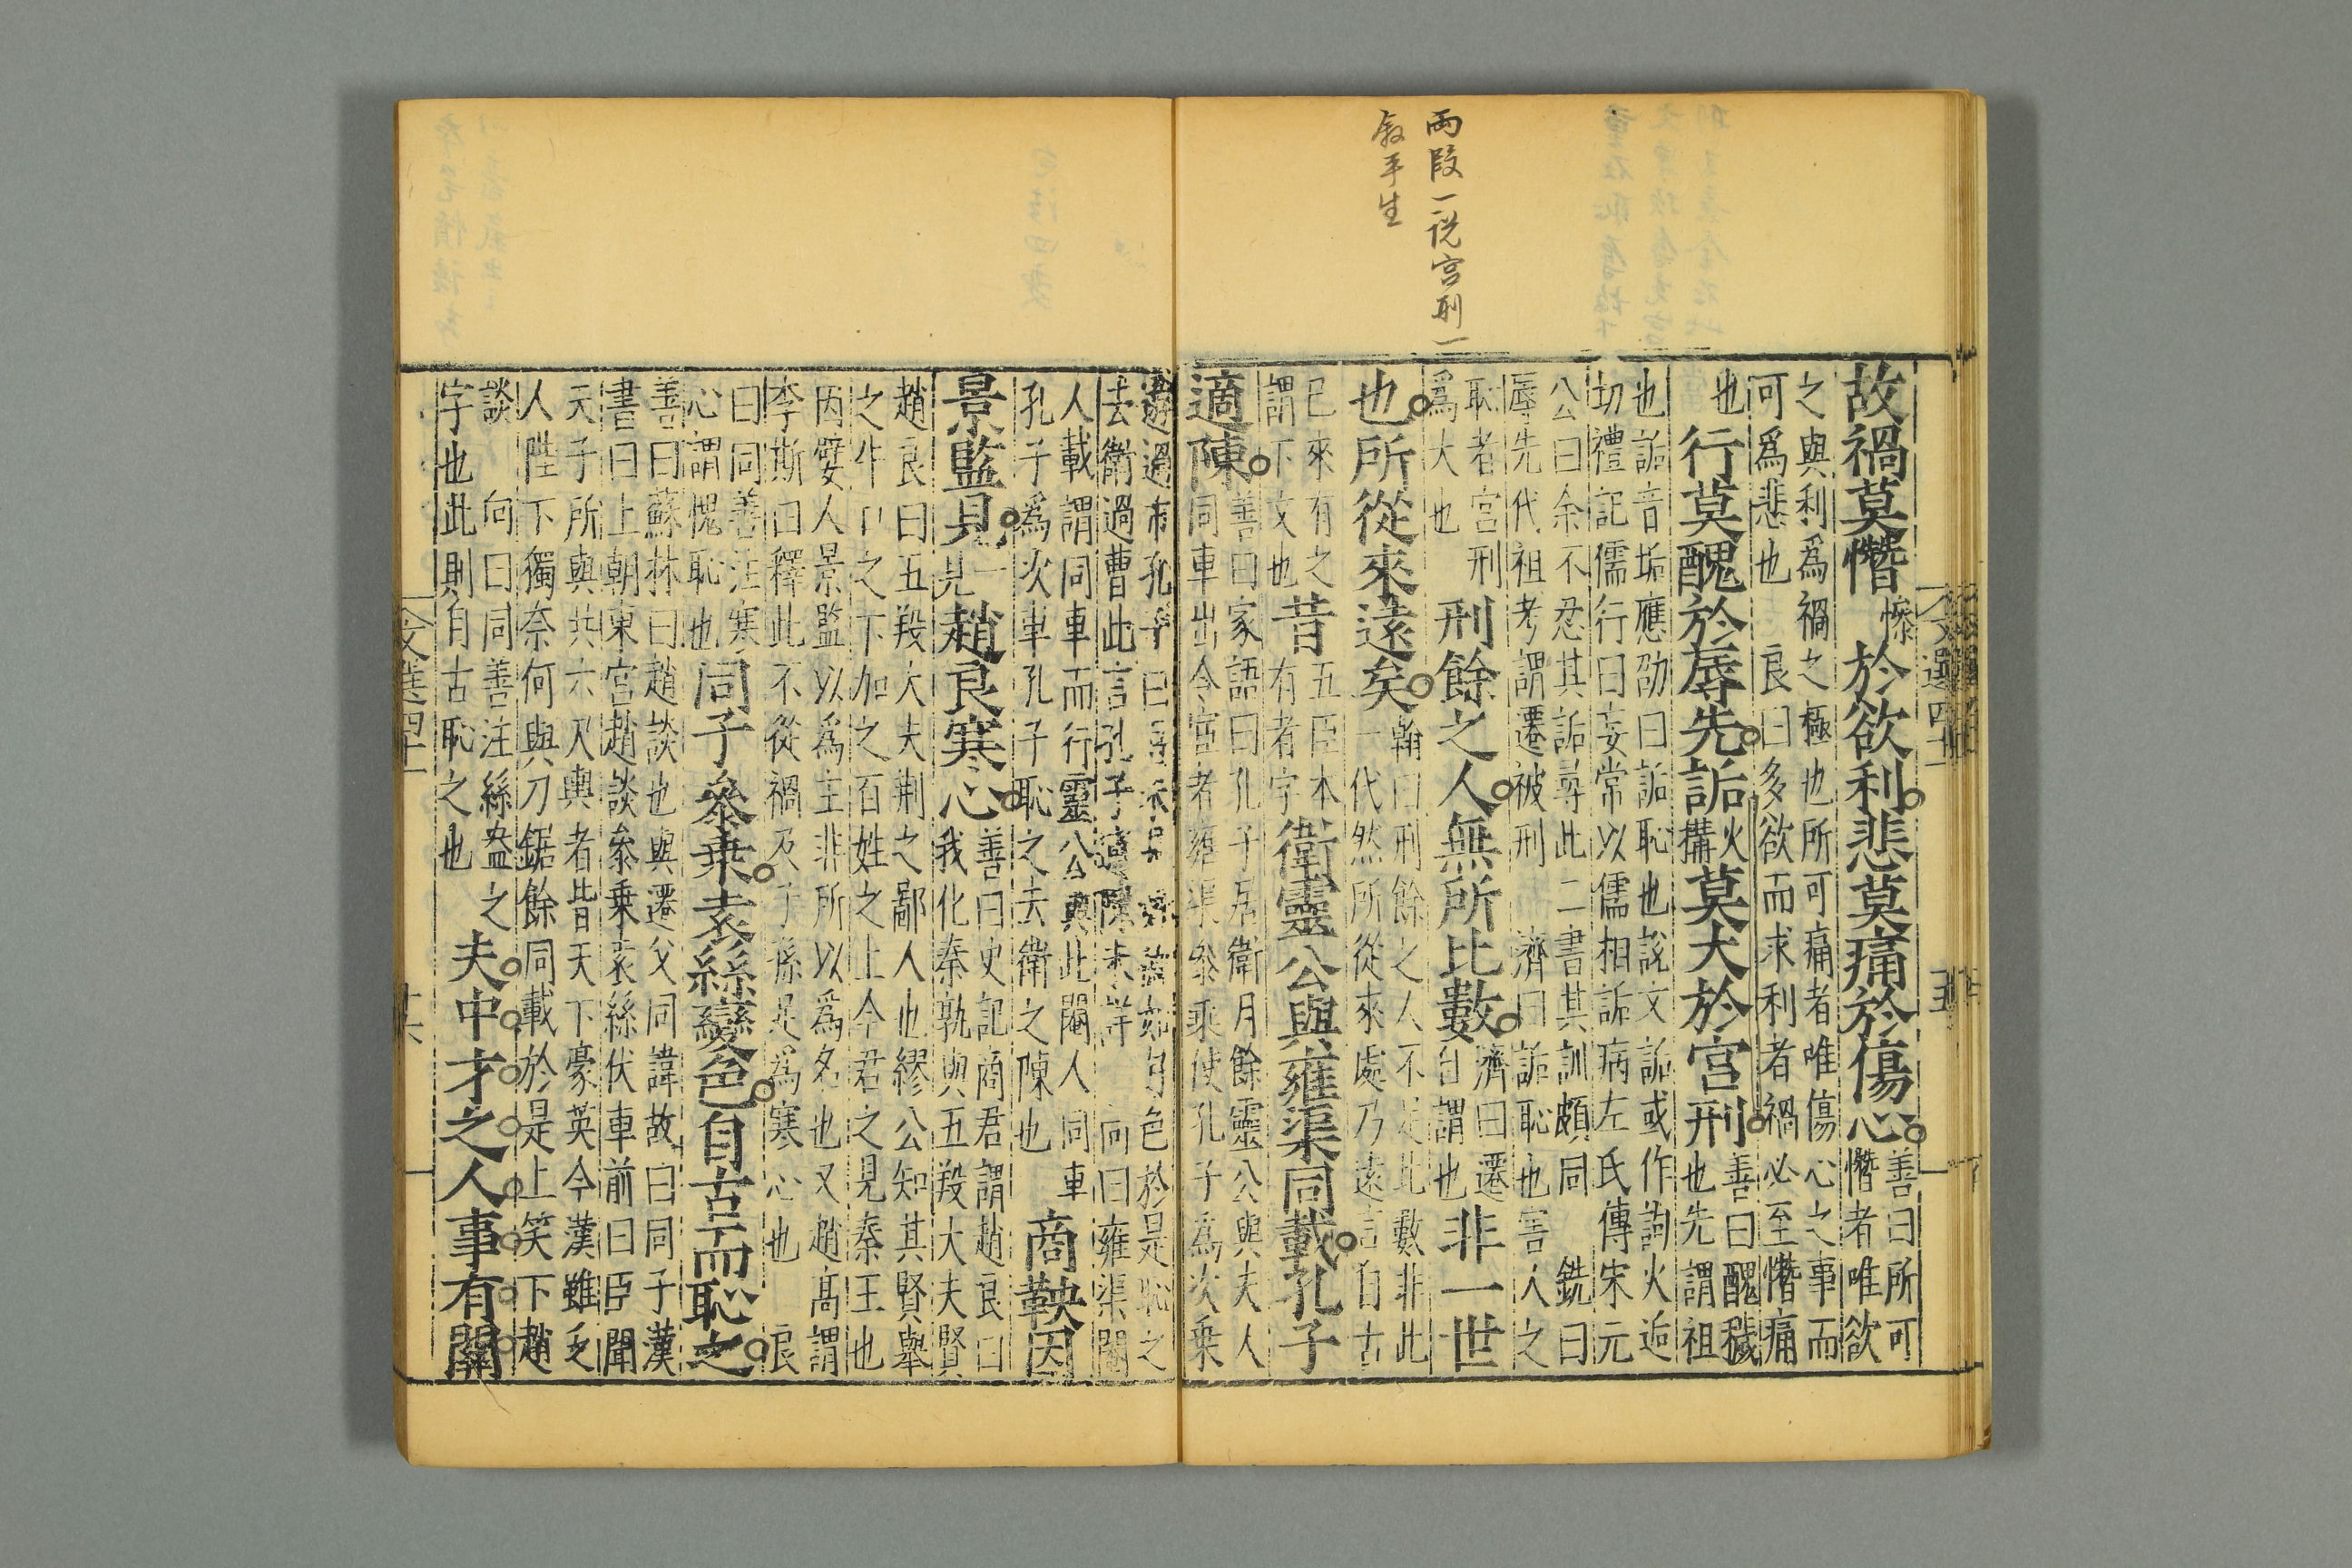 兩段一說宮刑一
敘平生
故禍莫憯慘於欲利悲莫痛於傷心善曰所可
憯者唯欲
之與利爲禍之極也所可痛者唯傷心之事而
可爲悲也 良曰多欲而求利者禍必至憯痛
也行莫醜於辱先詬火
搆莫大於宮刑善曰醜穢
也先謂祖
也詬音垢應劭曰詬恥也說文詬或作訽火逅
切禮記儒行曰妄常以儒相詬病左氏傳宋元
公曰余不忍其詬尋此二書其訓頗同 銑曰
辱先代祖考謂遷被刑 濟曰詬恥也害人之
恥者宮刑
爲大也刑餘之人無所比數濟曰遷
自謂也非一世
也所從來遠矣翰曰刑餘之人不足比數非此
一代然所從來處乃遠言自古
已來有之
謂下文也昔五臣本
有者字衛靈公與雍渠同載孔子
適陳善曰家語曰孔子居衛月餘靈公與夫人
同車出令宦者雍渠參乘使孔子爲次乗
遊過市孔子曰吾未見好德如好色於是恥之
去衛過曹此言孔子適陳未詳 向曰雍渠閹
人載謂同車而行靈公與此閹人同車
孔子爲次車孔子恥之去衛之陳也商鞅因
景監見見趙良寒心善曰史記商君謂趙良曰
我化秦孰與五羖大夫賢
趙良曰五羖大夫荆之鄙人也繆公知其賢舉
之牛口之下加之百姓之上今君之見秦王也
因嬖人景監以爲主非所以爲名也又趙髙謂
李斯曰釋此不從禍及子孫足爲寒心也 良
曰同善注寒
心謂愧恥也同子參乗袁絲變色自古而恥之
善曰蘇林曰趙談也與遷父同諱故曰同子漢
書曰上朝東宮趙談參乗袁絲伏車前曰臣聞
天子所與共六尺輿者皆天下豪英今漢雖乏
人陛下獨奈何與刀鋸餘同載於是上笑下趙
談 向曰同善注絲盎之
字也此則自古恥之也夫中才之人事有關
文選四十一